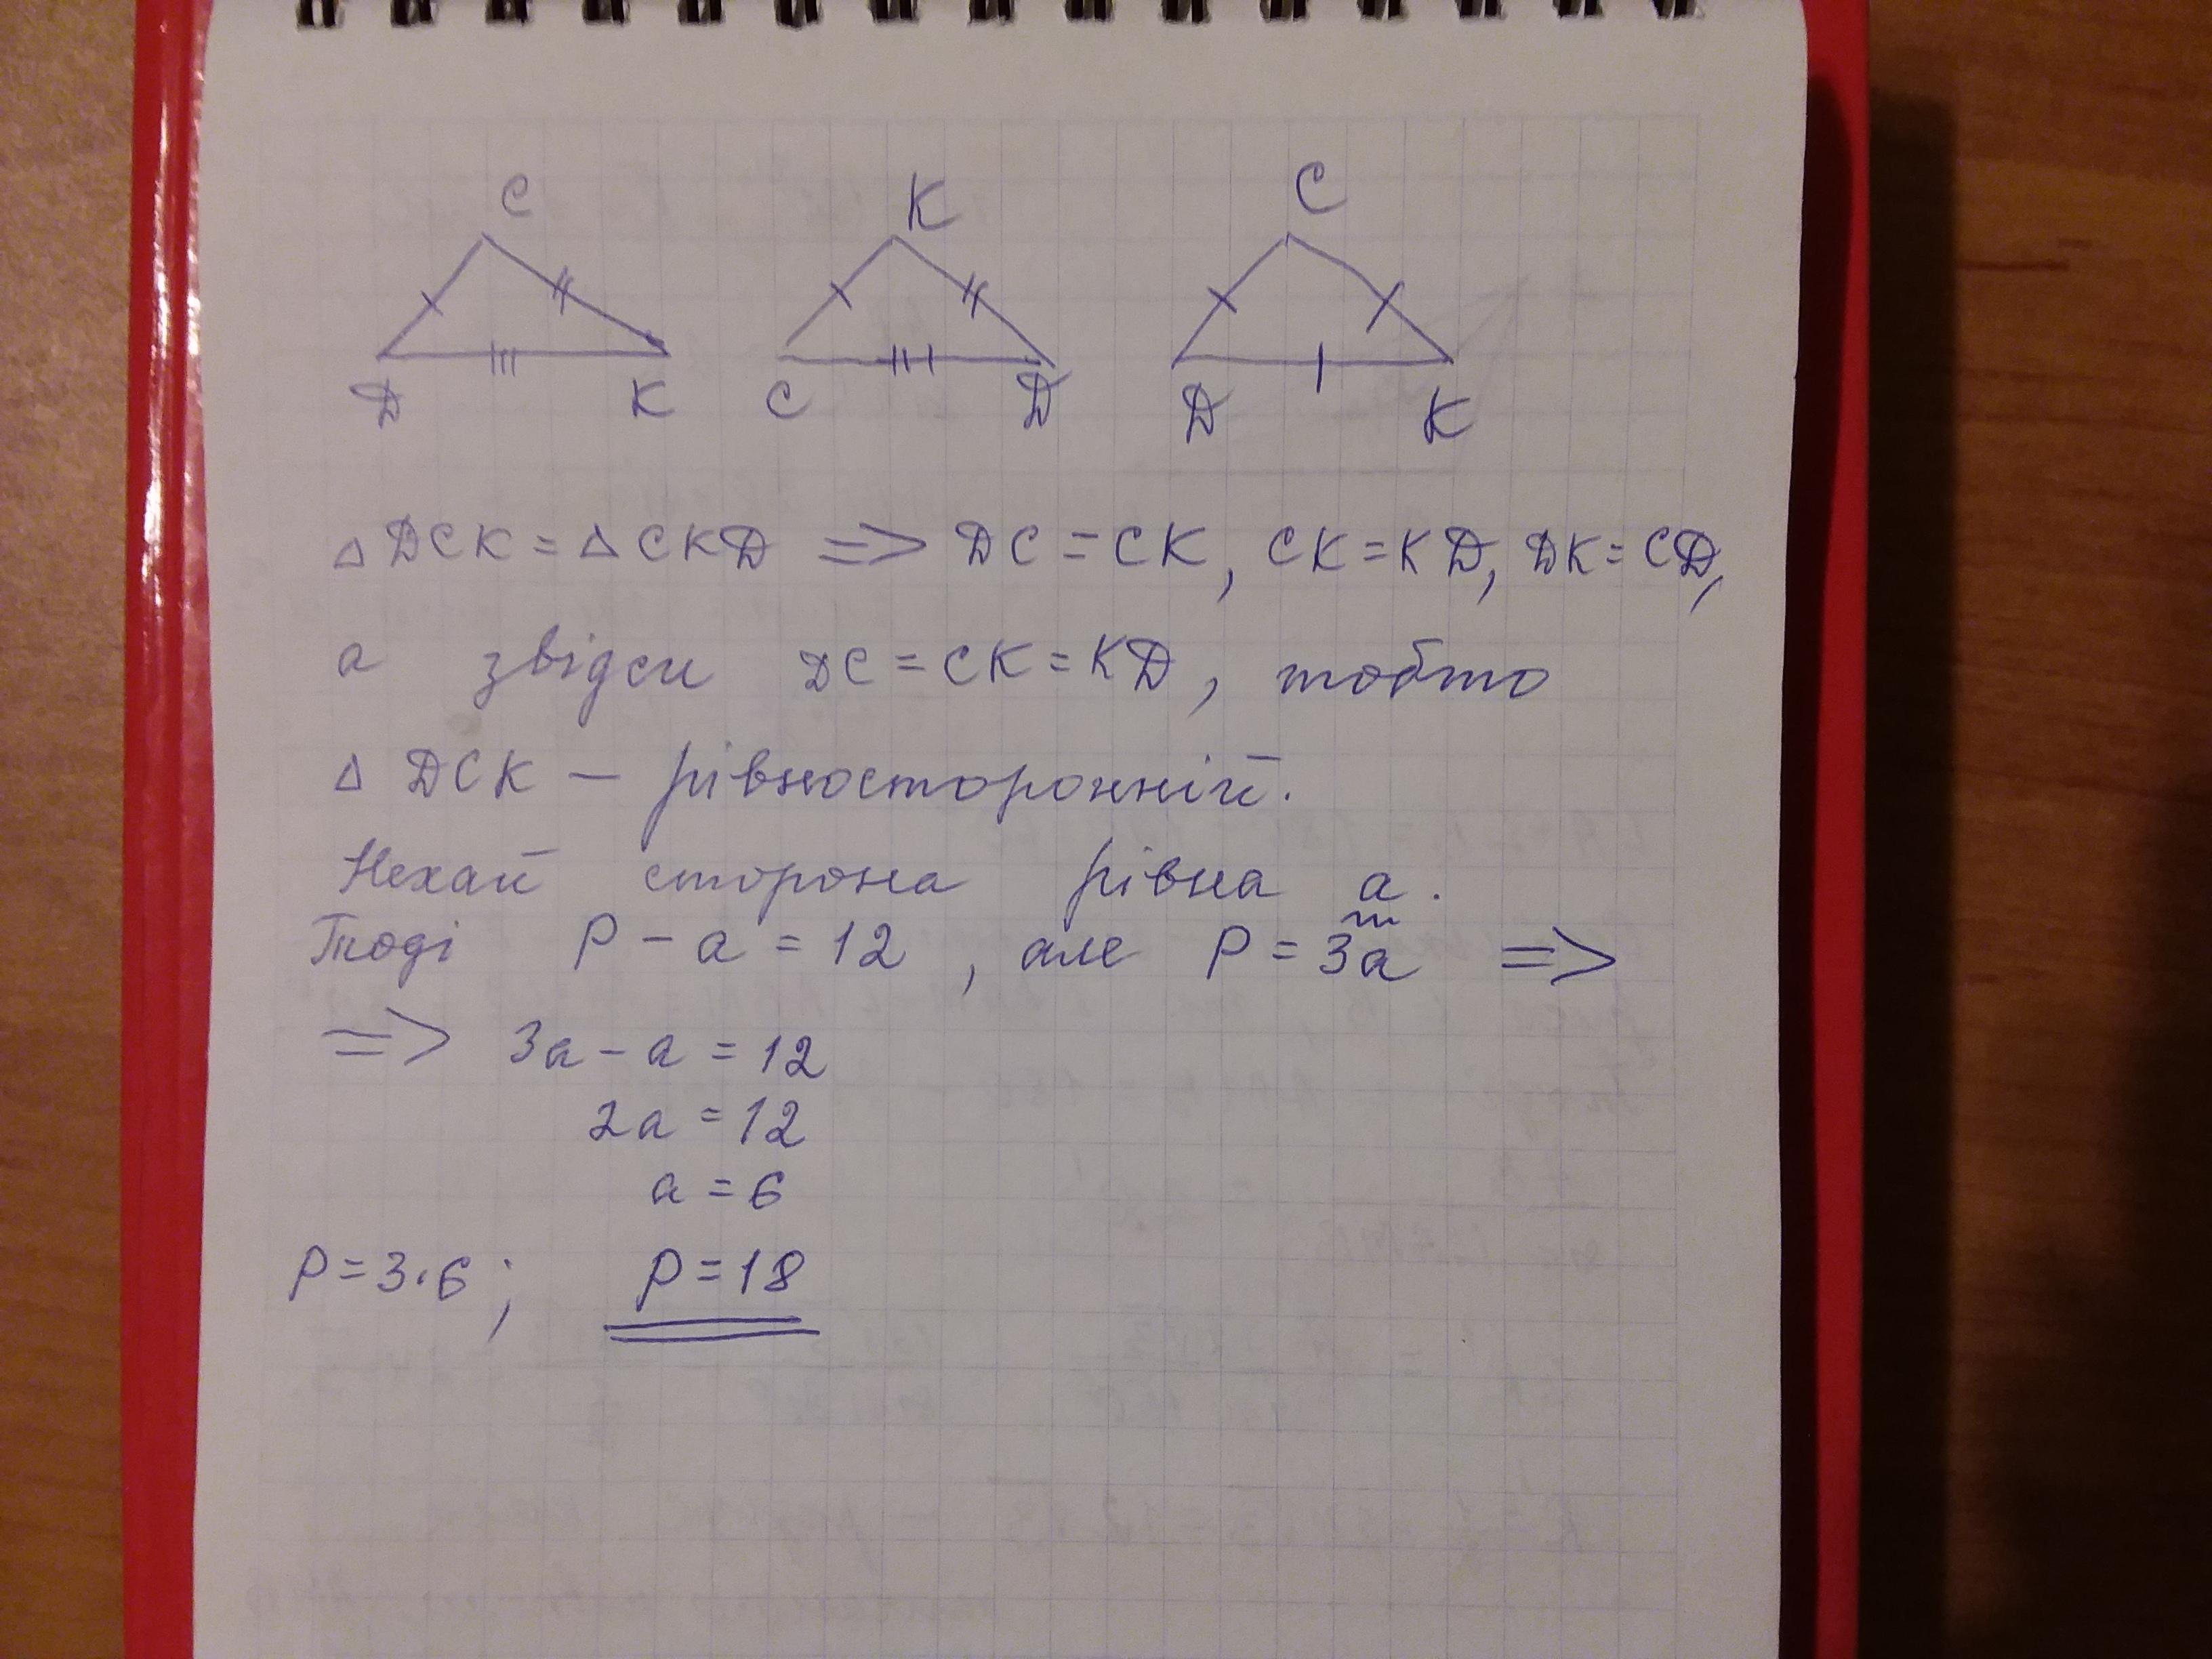 C K C
D K C D D K
△ DCK = △ CKD => DC = CK, CK = KD, DK = CD,
а звідси DC = CK = KD, тобто
△ DCK — рівносторонній.
Нехай сторона рівна a.
Тоді P - a = 12, але P = 3a =>
=> 3a - a = 12
2a = 12
a = 6
P = 3·6; P = 18